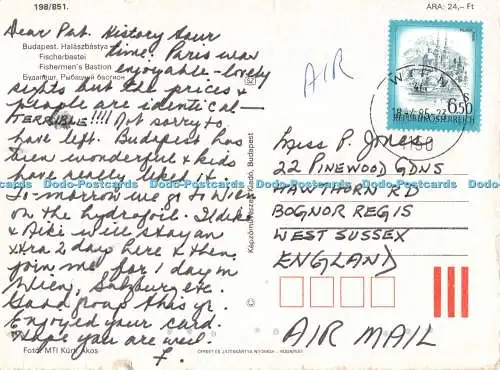 198/851.
ÁRA: 24,– Ft
Dear Pat. History Tour
Budapest. Halászbástya
time. Paris was
Fischerbastei
Fishermen's Bastion
enjoyable – lovely
Будапешт, Рыбацкий бастион
sights but the prices &
people are identical –
TERRIBLE!!!! Not sorry to
have left. Budapest has
been wonderful & kids
have really liked it.
To-morrow we go to Wien
on the hydrofoil. Ildiko
& Aiki will stay an
xtra 2 days here & then
join me for 1 day in
Wien, Salzburg etc.
Good group this yr.
Enjoyed your card.
Hope you are well.
Foto: MTI Kürti Ákos
F.
Képzőművészeti Kiadó, Budapest
OFFSET ÉS JÁTÉKKÁRTYA NYOMDA – BUDAPEST
AIR
WIEN
18.
85
S
6.50
REPUBLIK ÖSTERREICH
Miss P. Jones
22 PINEWOOD GDNS
HAWTHORN RD
BOGNOR REGIS
WEST SUSSEX
ENGLAND
AIR MAIL
Dodo-Postcards Dodo-Postcards Dodo-Postcards Dodo-Postcards Dodo-Postcards